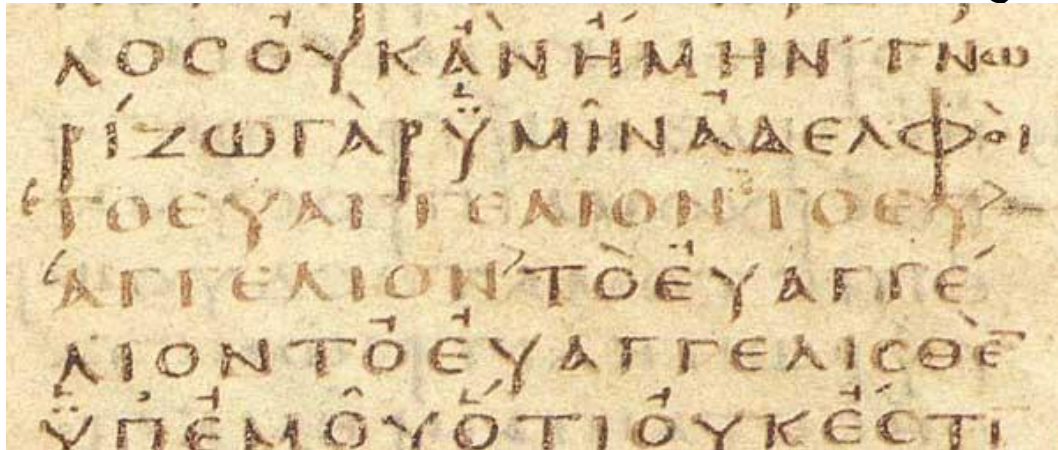 ΛΟCΟὐΚἂΝἤΜΗΝ ΓΝω
ΡίΖωΓὰΡϋΜῖΝἀΔΕΛΦὸΙ
ΤΟΕΥΑΓΓΕΛΙΟΝΤΟΕΥ
ΑΓΓΕΛΙΟΝΤὸΕὐΑΓΓέ
ΛΙΟΝΤὸΕὐΑΓΓΕΛΙCΘὲ̄
ϋΠἐΜΟῦὅΤΙΟὐΚἔCΤΙ